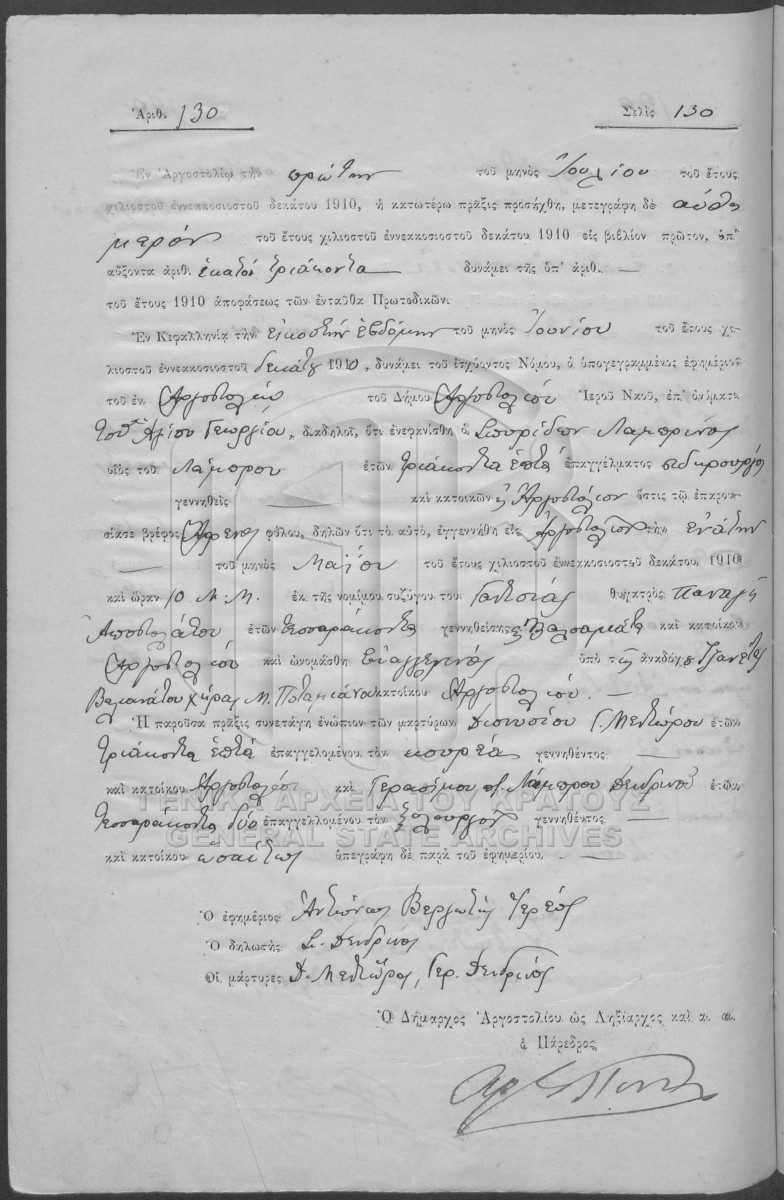 Ἀριθ. 130
Σελὶς 130
Ἐν Ἀργοστολίῳ τὴν πρώτην τοῦ μηνὸς Ἰουλίου τοῦ ἔτους
χιλιοστοῦ ἐννεακοσιοστοῦ δεκάτου 1910, ἡ κατωτέρω πρᾶξις προσήχθη, μετεγράφη δὲ αὐθη
μερόν τοῦ ἔτους χιλιοστοῦ ἐννεκοσιοστοῦ δεκάτου 1910 εἰς βιβλίον πρῶτον, ὑπ'
αὔξοντα ἀριθ. ἑκατόν τριάκοντα δυνάμει τῆς ὑπ' ἀριθ. —
τοῦ ἔτους 1910 ἀποφάσεως τῶν ἐνταῦθα Πρωτοδικῶν.
Ἐν Κεφαλληνίᾳ τὴν εἰκοστήν ἑβδόμην τοῦ μηνὸς Ἰουνίου τοῦ ἔτους χι-
λιοστοῦ ἐννεακοσιοστοῦ δεκάτου 1910, δυνάμει τοῦ ἰσχύοντος Νόμου, ὁ ὑπογεγραμμένος ἐφημέριος
τοῦ ἐν Ἀργοστολίῳ τοῦ Δήμου Ἀργοστολίου Ἱεροῦ Ναοῦ, ἐπ' ὀνόματι
τοῦ Ἁγίου Γεωργίου, διαδηλοῖ, ὅτι ἐνεφανίσθη ὁ Σπυρίδων Λαμπρινός
υἱὸς τοῦ Λάμπρου ἐτῶν τριάκοντα ἑπτά ἐπαγγέλματος σιδηρουργός
γεννηθεὶς — καὶ κατοικῶν Ἀργοστόλιον ὅστις τῷ ἐπαρου-
σίασε βρέφος Ἄρρεν φύλου, δηλῶν ὅτι τὸ αὐτό, ἐγεννήθη εἰς Ἀργοστόλιον τὴν ἐνάτην
— τοῦ μηνὸς Μαΐου τοῦ ἔτους χιλιοστοῦ ἐννεακοσιοστοῦ δεκάτου 1910
καὶ ὥραν 10 Μ.Μ. ἐκ τῆς νομίμου συζύγου του θυγατρὸς Παναγῆ
Ἀποστολάτου ἐτῶν τεσσαράκοντα γεννηθείσης Βαλσαμάτα καὶ κατοίκου
Ἀργοστολίου καὶ ὠνομάσθη Εὐαγγελινός ὑπὸ τῆς ἀναδόχου Τζανέτας
Βαλιανάτου χήρας Μ. Ποταμιάνου κατοίκου Ἀργοστολίου. —
Ἡ παροῦσα πρᾶξις συνετάγη ἐνώπιον τῶν μαρτύρων Διονυσίου Γ. Μεντώρου ἐτῶν
τριάκοντα ἑπτά ἐπαγγελομένου τὸν κουρέα γεννηθέντος —
καὶ κατοίκου Ἀργοστολίου καὶ Γερασίμου Λάμπρου Δενδρινοῦ ἐτῶν
τεσσαράκοντα δύο ἐπαγγελομένου τὸν ξυλουργόν γεννηθέντος —
καὶ κατοίκου ὡσαύτως ὑπεγράφη δὲ παρὰ τοῦ ἐφημερίου. —
ΓΕΝΙΚΑ ΑΡΧΕΙΑ ΤΟΥ ΚΡΑΤΟΥΣ
GENERAL STATE ARCHIVES
Ὁ ἐφημέριος Ἀντώνιος Βεργωτής Ἱερεύς
Ὁ δηλωτὴς Σ. Δενδρινός
Οἱ μάρτυρες Δ. Μεντῶρος, Γερ. Δενδρινός
Ὁ Δήμαρχος Ἀργοστολίου ὡς Ληξίαρχος καὶ α. αὐ.
ὁ Πάρεδρος